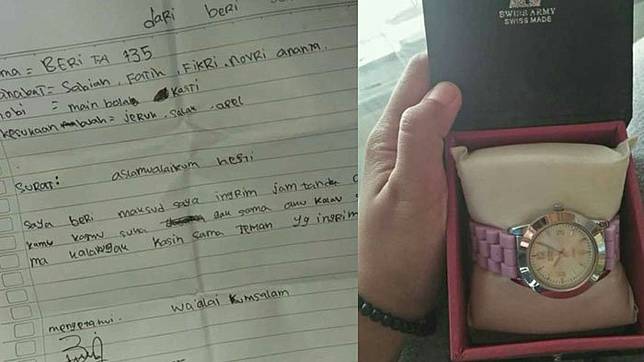 dari beri
ma = BERI TA 735
anabat = Sabiah, Fatih, Fikri, Novri ananta.
hobi = main bola kasti
kesukaan buah = jeruk, salak, apel
SURAT: aslamualaikum hesti
saya beri maksud saya ingrim jam tanda
kamu kagmu suka dak sama aku kalau
ma kalauguk kasih sama teman yg ingrim
wa'alai kumsalam
mengetahui.
SWISS ARMY
SWISS MADE